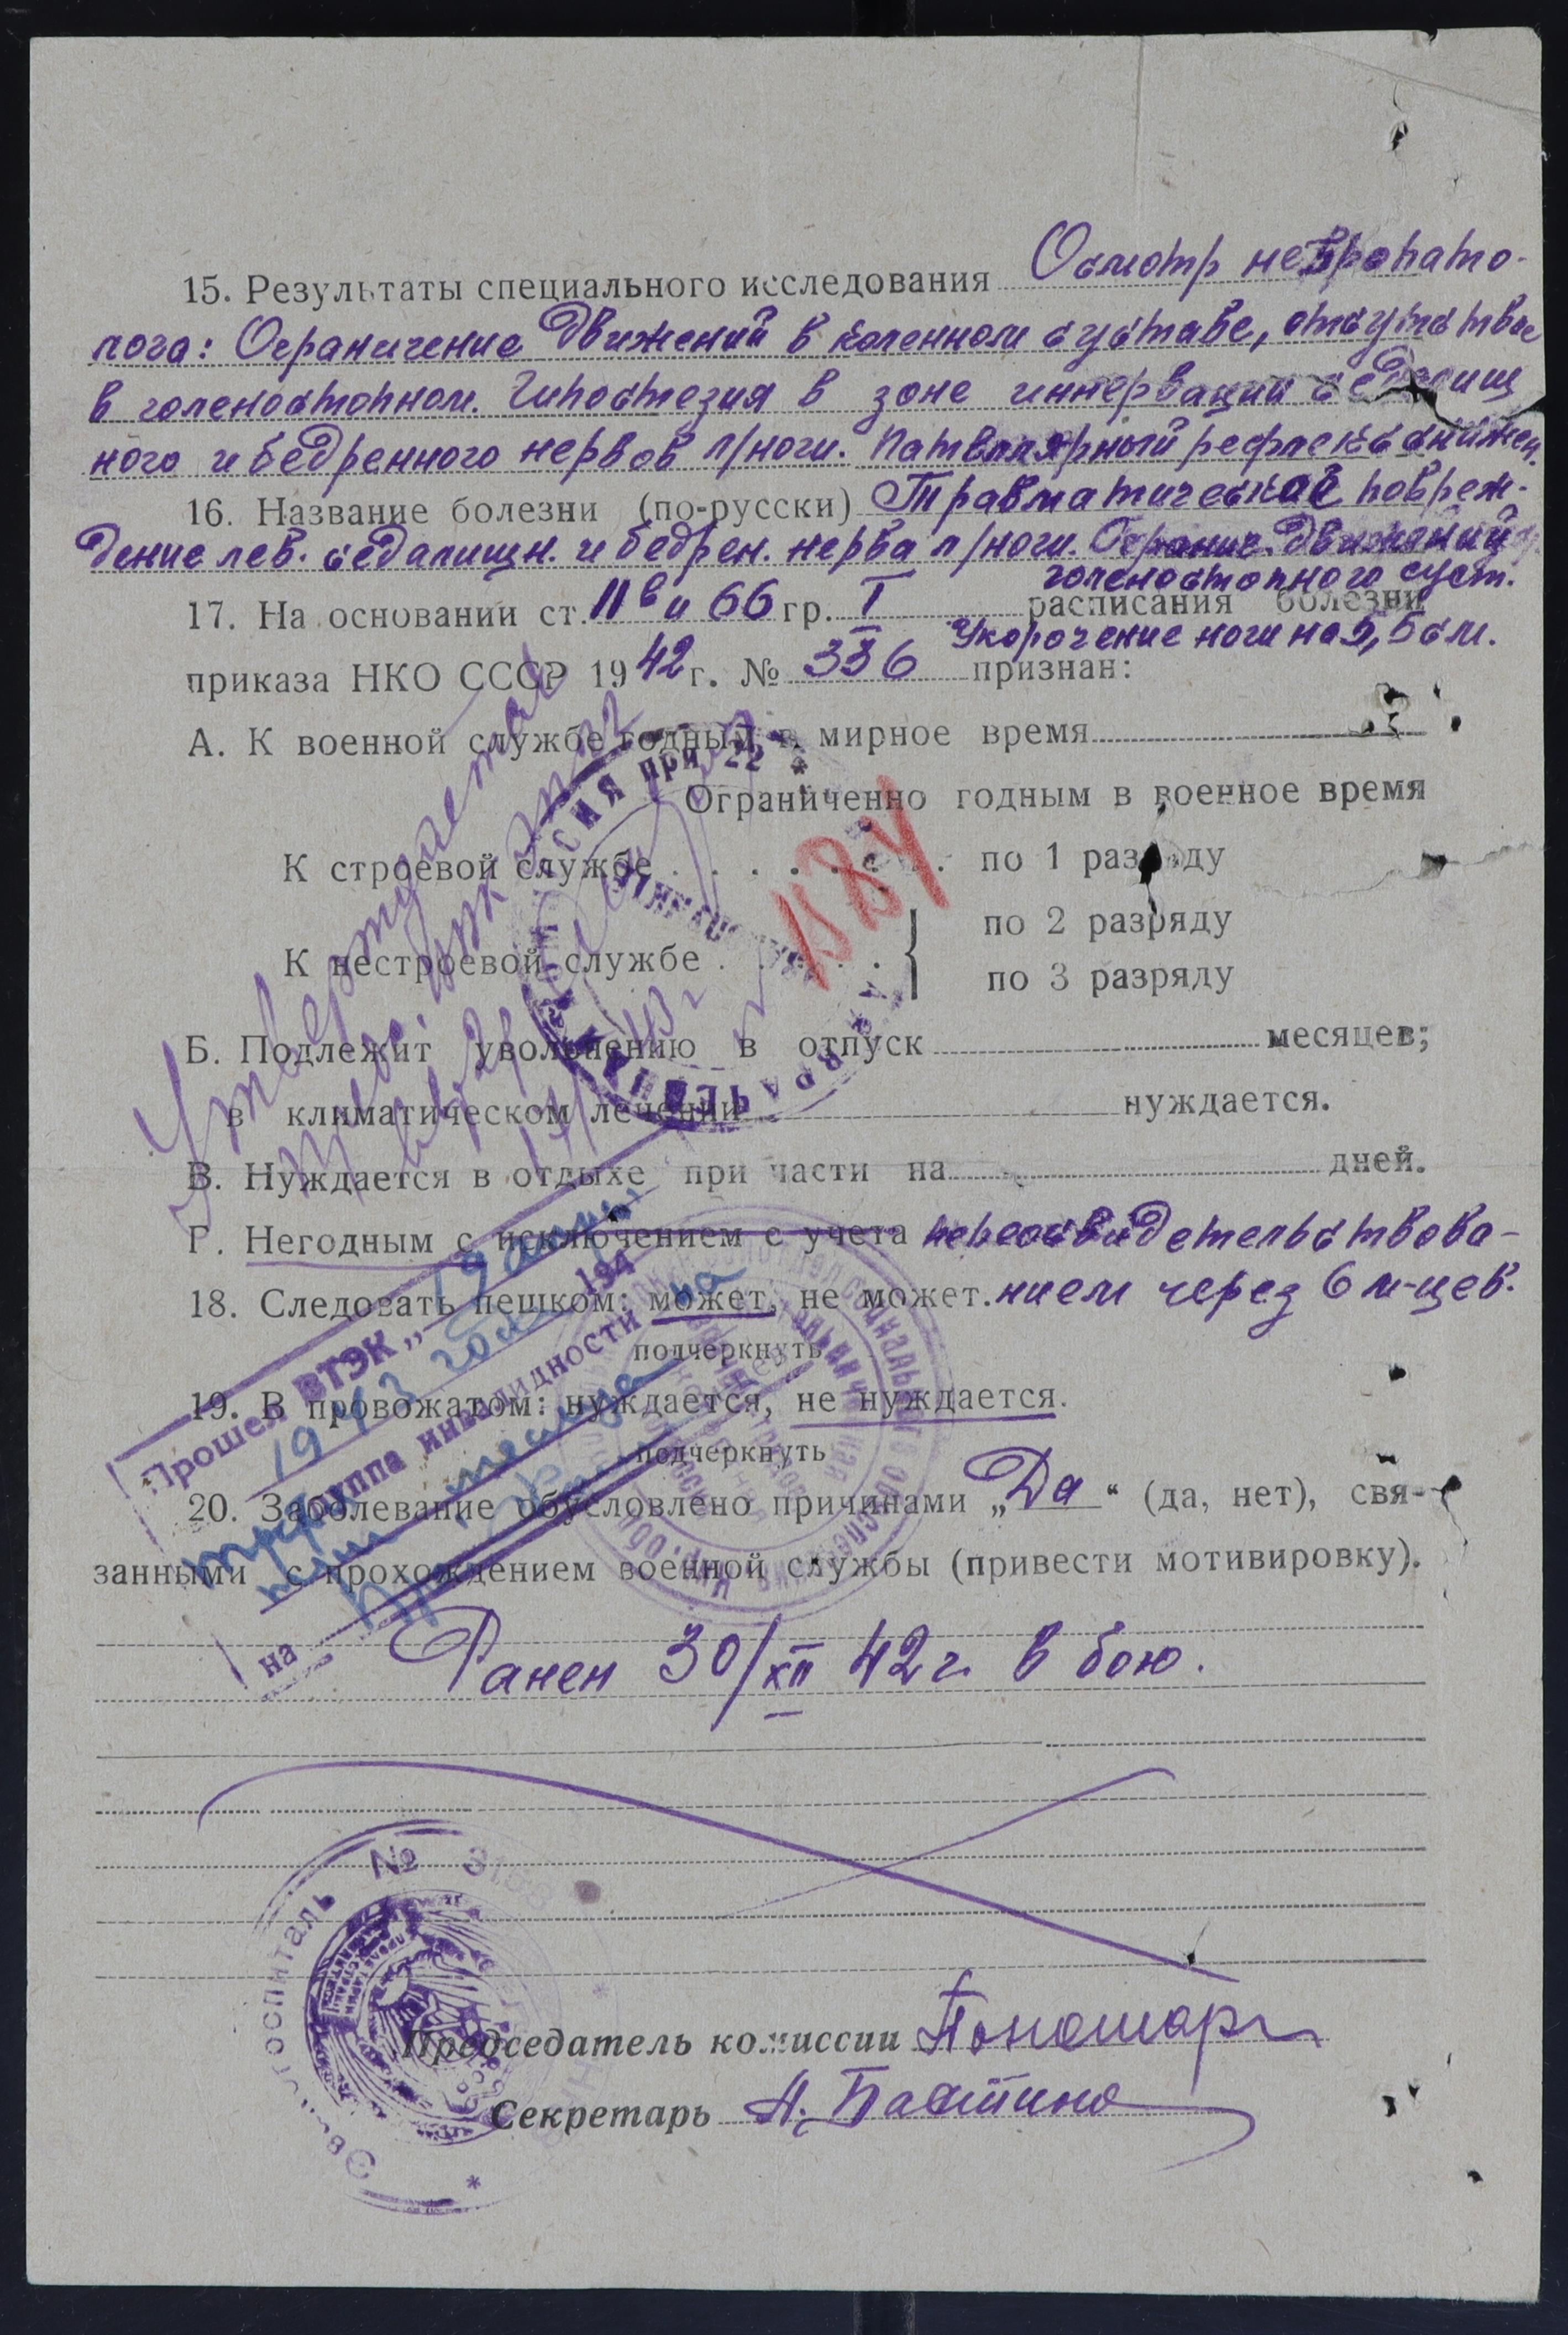 15. Результаты специального исследования Осмотр невропато-
лога: Ограничение движений в коленном суставе, отсутствие
в голеностопном. Гипостезия в зоне иннервации седалищ
ного и бедренного нервов л/ноги. Пателлярный рефлекс снижен.
16. Название болезни (по-русски) Травматическое повреж-
дение лев. седалищн. и бедрен. нерва л/ноги. Огранич. движений
голеностопного суст.
17. На основании ст. 11в и 66 гр. I расписания болезни
Укорочение ноги на 5,5 см.
приказа НКО СССР 1942 г. № 336 признан:
А. К военной службе годным в мирное время
Ограниченно годным в военное время
К строевой службе по 1 разряду
по 2 разряду
К нестроевой службе
по 3 разряду
1584
Утверждается
Б. Подлежит увольнению в отпуск месяцев;
в климатическом лечении нуждается.
В. Нуждается в отдыхе при части на дней.
Г. Негодным с исключением с учета переосвидетельствова-
18. Следовать пешком: может, не может. нием через 6 м-цев.
подчеркнуть
19. В провожатом: нуждается, не нуждается.
подчеркнуть
20. Заболевание обусловлено причинами „Да“ (да, нет), свя-
занными с прохождением военной службы (привести мотивировку).
Прошел ВТЭК „19 194
1943 года
группа инвалидности
на
Ранен 30/XII 42 г. в бою.
Эвакогоспиталь № 3188
Председатель комиссии
Секретарь